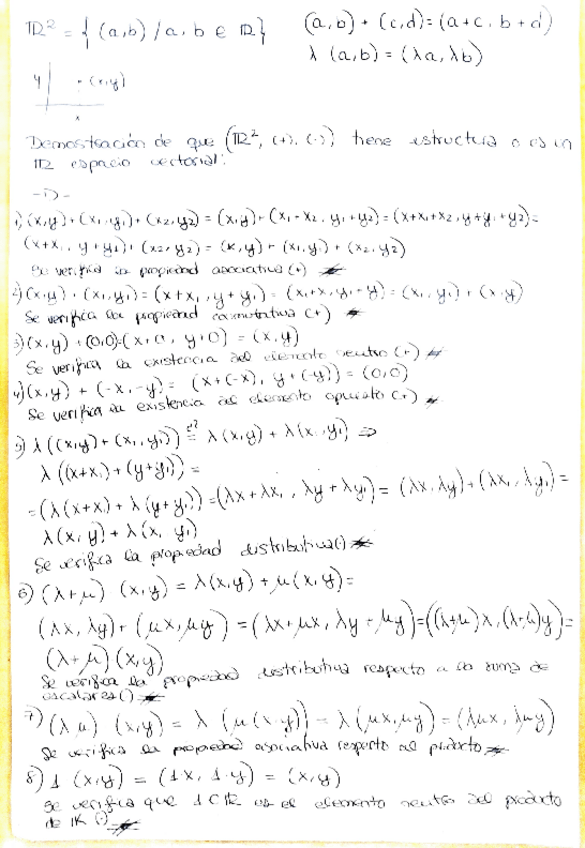 ℝ² = { (a,b) / a, b ∈ ℝ}
(a,b) + (c,d) = (a+c, b+d)
λ (a,b) = (λa, λb)
y
· (x,y)
x
Demostración de que (ℝ², (+), (·)) tiene estructura o es un
ℝ espacio vectorial:
-D-
1) (x,y) + (x₁,y₁) + (x₂,y₂) = (x,y) + (x₁+x₂, y₁+y₂) = (x+x₁+x₂, y+y₁+y₂) =
(x+x₁, y+y₁) + (x₂,y₂) = (x,y) + (x₁,y₁) + (x₂,y₂)
Se verifica la propiedad asociativa (+)
2) (x,y) + (x₁,y₁) = (x+x₁, y+y₁) = (x₁+x, y₁+y) = (x₁,y₁) + (x,y)
Se verifica la propiedad conmutativa (+)
3) (x,y) + (0,0) = (x+0, y+0) = (x,y)
Se verifica la existencia del elemento neutro (+)
4) (x,y) + (-x,-y) = (x+(-x), y+(-y)) = (0,0)
Se verifica la existencia del elemento opuesto (+)
5) λ((x,y) + (x₁,y₁)) =? λ(x,y) + λ(x₁,y₁) ⇒
λ((x+x₁) + (y+y₁)) =
= (λ(x+x₁) + λ(y+y₁)) = (λx+λx₁, λy+λy₁) = (λx,λy) + (λx₁, λy₁) =
λ(x,y) + λ(x₁ y₁)
Se verifica la propiedad distributiva (·)
6) (λ+μ) (x,y) = λ(x,y) + μ(x,y) =
(λx, λy) + (μx, μy) = (λx+μx, λy+μy) = ((λ+μ)x, (λ+μ)y) =
(λ+μ)(x,y)
Se verifica la propiedad distributiva respecto a la suma de
escalares (·)
7) (λμ) (x,y) = λ (μ(x,y)) = λ(μx,μy) = (λμx, λμy)
Se verifica la propiedad asociativa respecto al producto
8) 1 (x,y) = (1x, 1·y) = (x,y)
Se verifica que 1 ∈ ℝ es el elemento neutro del producto
de K (·)